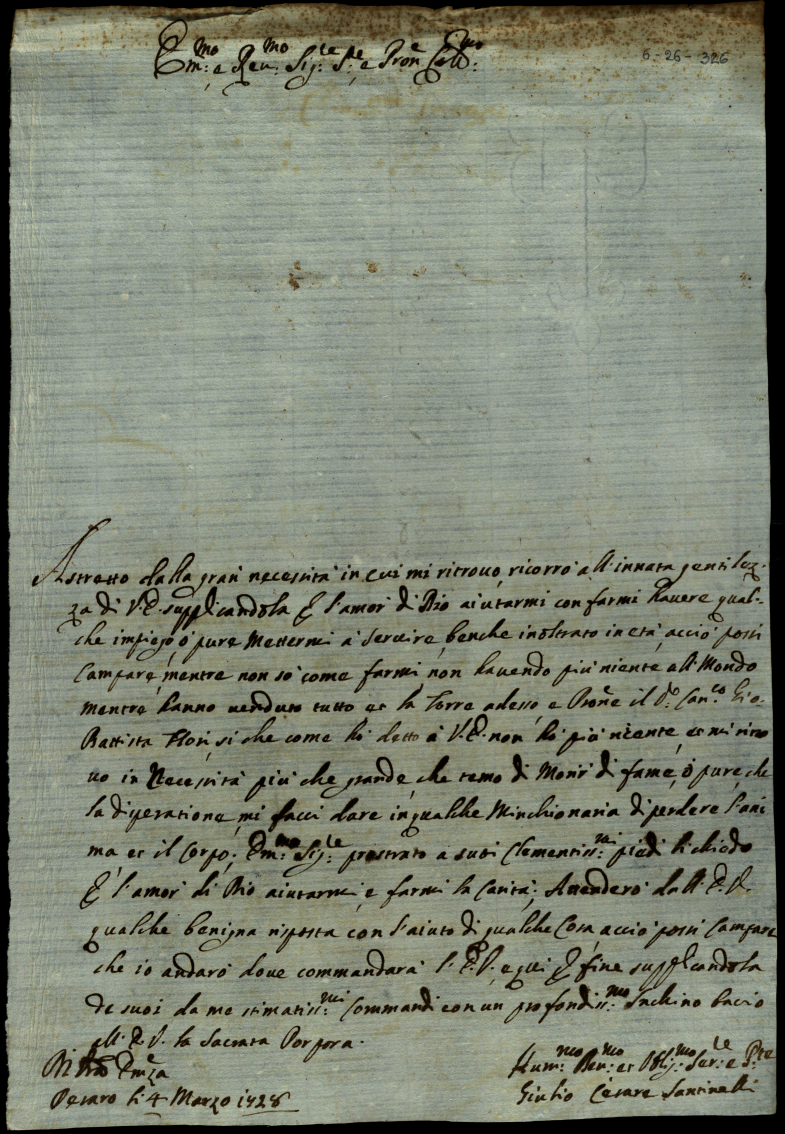 Em:mo e Reu:mo Sig:re S:re e Pron Coll:mo
6-26-326
Astretto dalla gran necessità in cui mi ritrouo, ricorro all'innata gentilez-
za di V.E. supplicandola P l'amor di Dio aiutarmi con farmi hauere qual-
che impiego ò pure Mettermi à Seruire, benche inoltrato in età acciò possi
Campare, mentre non sò come farmi non hauendo più niente all Mondo
mentre hanno uenduto tutto et la Torre adesso, e Prone il Can:co Gio.
Battista Fiori, si che come hò detto à V.E. non hò più niente, et mi ritro
uo in Necessità più che grande, che temo di Morir di fame, ò pure, che
la disperatione, mi facci dare in qualche Minchionaria di perdere l'ani
ma et il Corpo; Em:mo Sig:re prostrato a suoi Clementiss:mi piedi li chiedo
P l'amor di Dio aiutarmi, e farmi la Carità; Attenderò dall'E.V.
qualche benigna risposta con l'aiuto di qualche Cosa, acciò possi Campare
che io andarò doue commandarà l'E.V. e qui P fine supplicandola
de suoi da me stimatiss:mi Commandi con un profondiss:mo Inchino bacio
all'E.V. la Sacrata Porpora.
Di Emza
Pesaro li 4 Marzo 1728
Hum:mo Deu:mo et Oblig:mo Ser:re e
Giulio Cesare Santinelli